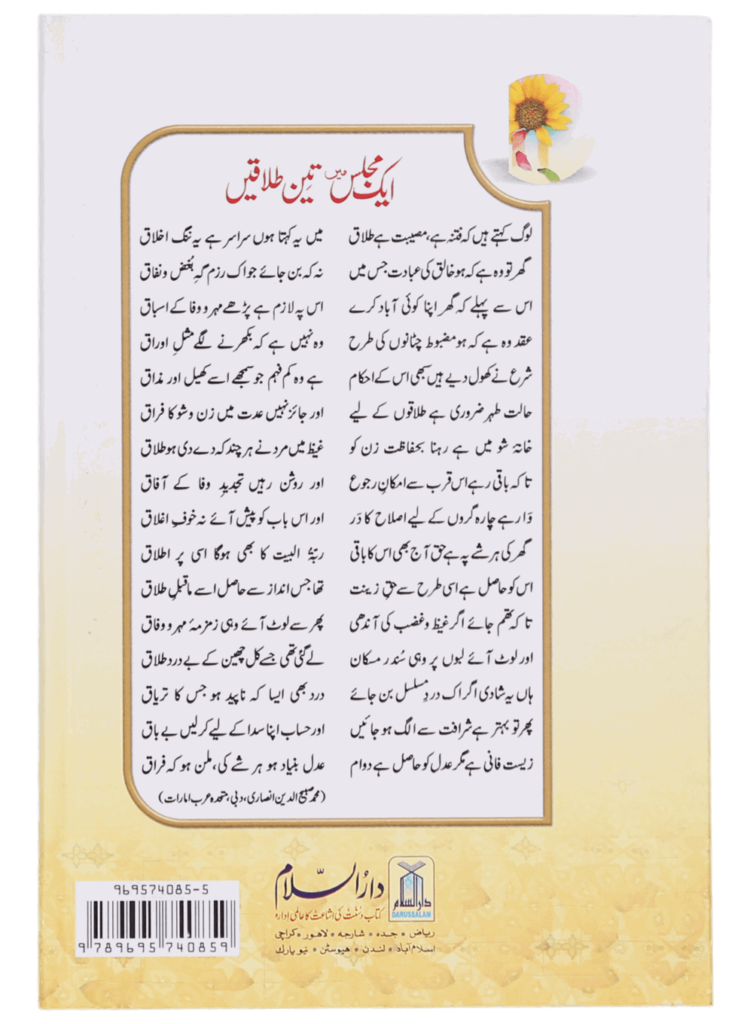 ایک مجلس میں تین طلاقیں
لوگ کہتے ہیں کہ فتنہ ہے، مصیبت ہے طلاق میں یہ کہتا ہوں سراسر ہے یہ ننگ اخلاق
گھر تو وہ ہے کہ ہو خالق کی عبادت جس میں نہ کہ بن جائے جو اک رزم گہِ بُغض و نفاق
اس سے پہلے کہ گھر اپنا کوئی آباد کرے اس پہ لازم ہے پڑھے مہر و وفا کے اسباق
عقد وہ ہے کہ ہو مضبوط چٹانوں کی طرح وہ نہیں ہے کہ بکھرنے لگے مثلِ اوراق
شرع نے کھول دیے ہیں سبھی اس کے احکام ہے وہ کم فہم جو سمجھے اسے کھیل اور مذاق
حالت طہر ضروری ہے طلاقوں کے لیے اور جائز نہیں عدت میں زن و شو کا فراق
خانۂ شو میں ہے رہنا بحفاظت زن کو غیظ میں مرد نے ہر چند کہ دے دی ہو طلاق
تا کہ باقی رہے اس قرب سے امکانِ رجوع اور روشن رہیں تجدیدِ وفا کے آفاق
وَا رہے چارہ گروں کے لیے اصلاح کا دَر اور اس باب کو پیش آئے نہ خوفِ اغلاق
گھر کی ہر شے پہ ہے حق آج بھی اس کا باقی ربۂ البیت کا بھی ہوگا اسی پر اطلاق
اس کو حاصل ہے اسی طرح سے حقِ زینت تھا جس انداز سے حاصل اسے ماقبلِ طلاق
تا کہ تھم جائے اگر غیظ و غضب کی آندھی پھر سے لوٹ آئے وہی زمزمۂ مہر و وفاق
اور لوٹ آئے لبوں پر وہی سُندر مسکان لے گئی تھی جسے کل چھین کے بے درد طلاق
ہاں یہ شادی اگر اک دردِ مسلسل بن جائے درد بھی ایسا کہ ناپید ہو جس کا تریاق
پھر تو بہتر ہے شرافت سے الگ ہو جائیں اور حساب اپنا سدا کے لیے کر لیں بے باق
زیست فانی ہے مگر عدل کو حاصل ہے دوام عدل بنیاد ہو ہر شے کی، ملن ہو کہ فراق
(محمد صبیح الدین انصاری، دبی، متحدہ عرب امارات)
دارالسلام
DARUSSALAM
دارُالسّلام
کتاب و سُنّت کی اشاعت کا عالمی ادارہ
ریاض • جدہ • شارجہ • لاہور • کراچی
اسلام آباد • لندن • ہیوسٹن • نیو یارک
969574085-5
9 789695 740859